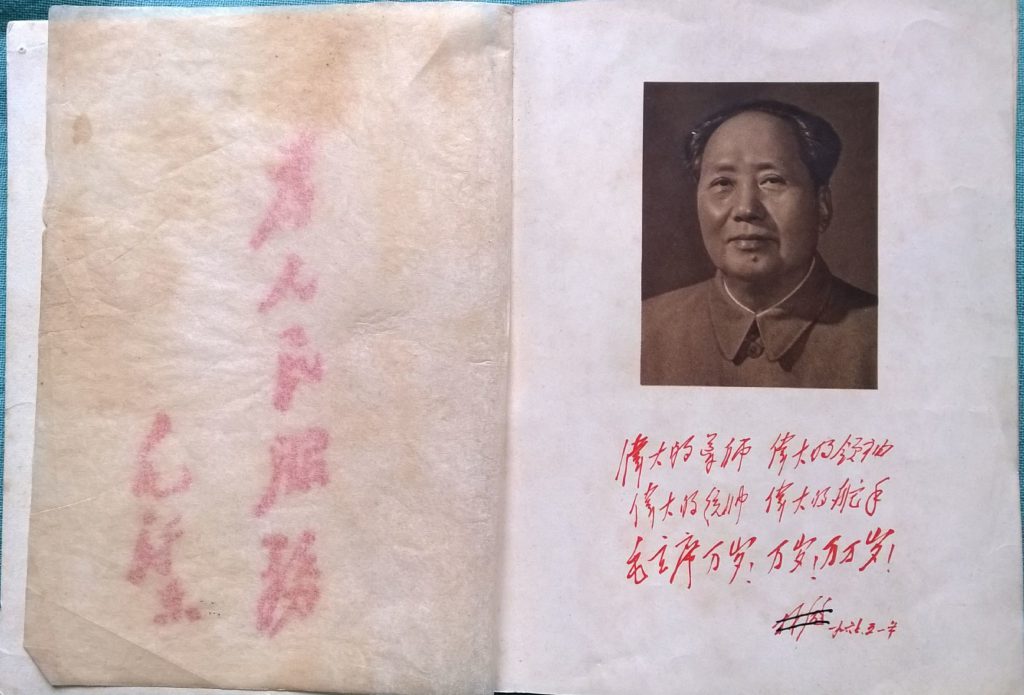 為人民服務
毛泽东
偉大的导师 偉大的领袖
偉大的统帅 偉大的舵手
毛主席万岁! 万岁! 万万岁!
一九六七.五一节